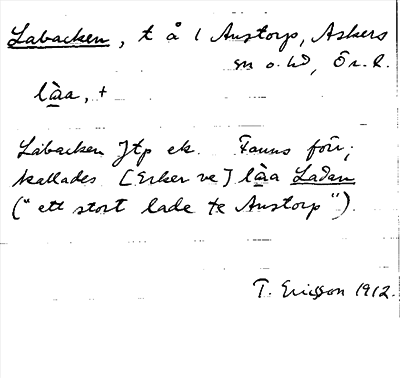 Labacken, t å / Austorp, Askers
sn o. hd, Ör. l.
là̱a, +
Labacken Jtp ek. Fanns förr;
kallades [Erker ve] là̱a Ladan
("ett stort lade te Austorp").
T. Ericsson 1912.